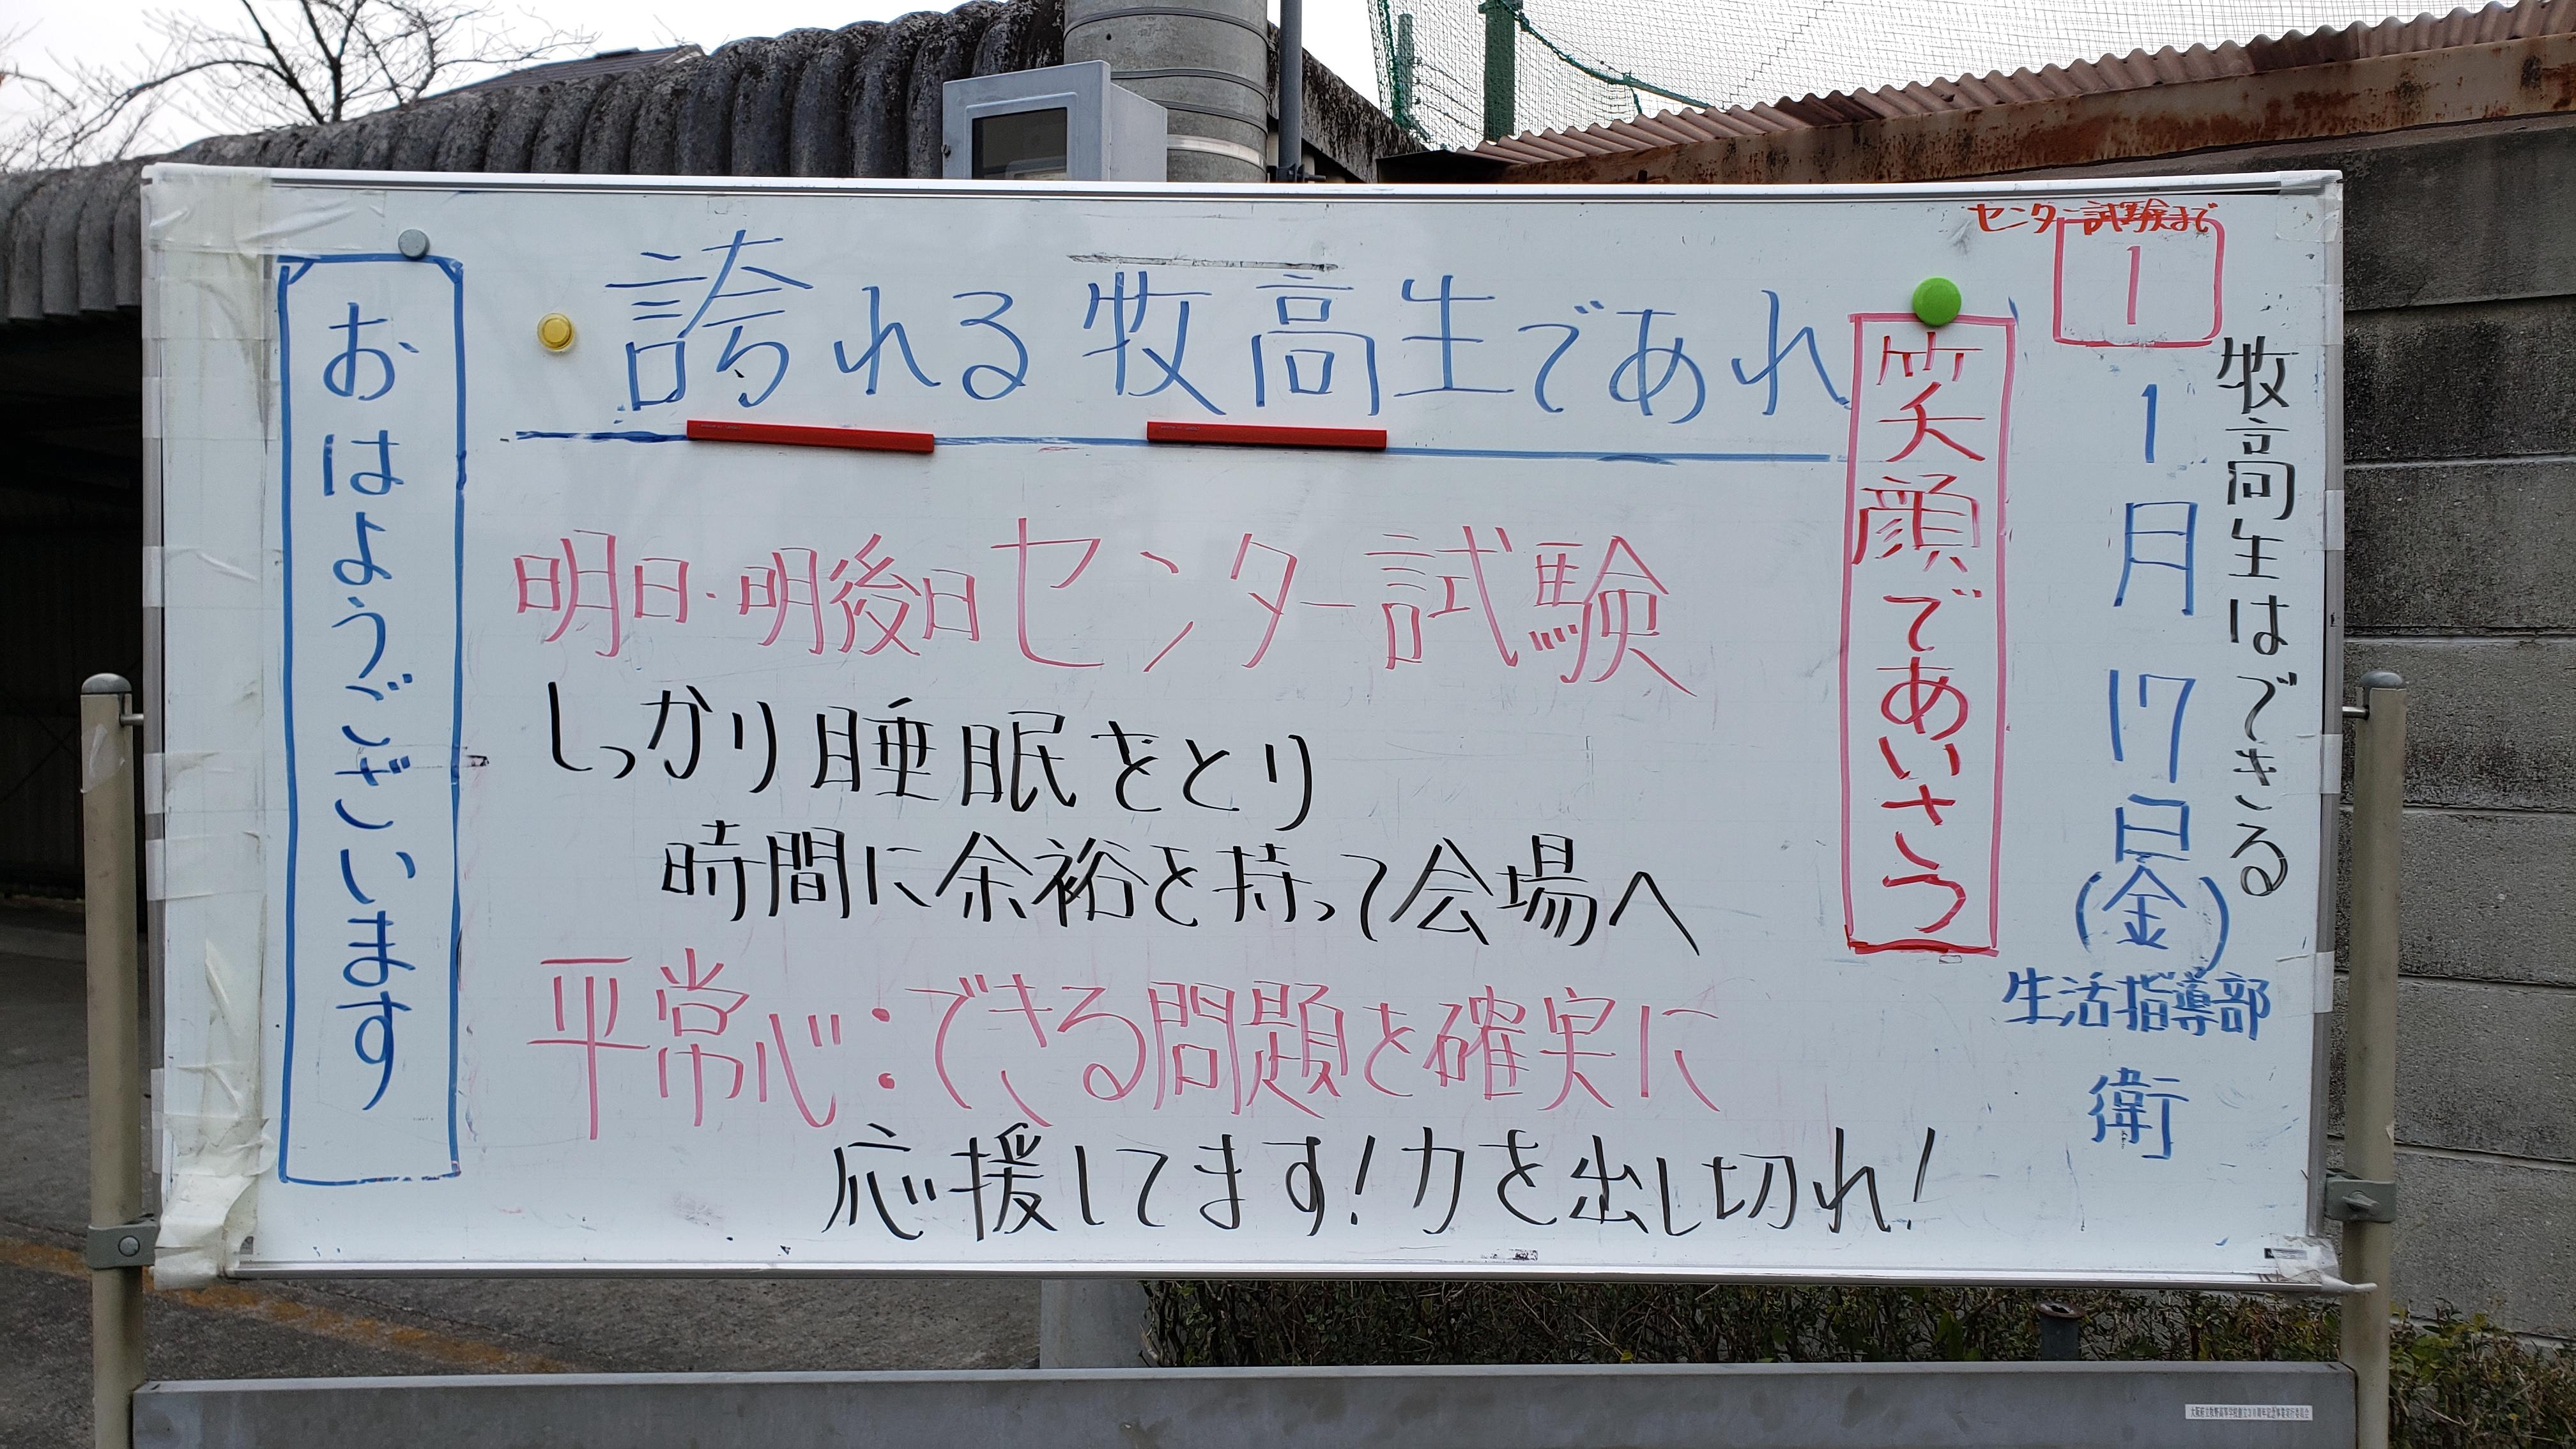 センター試験まで
1
牧高生はできる
1月17日(金)
生活指導部
衛
笑顔であいさつ
誇れる牧高生であれ
明日・明後日センター試験
しっかり睡眠をとり
時間に余裕を持って会場へ
平常心:できる問題を確実に
応援してます!力を出し切れ!
おはようございます